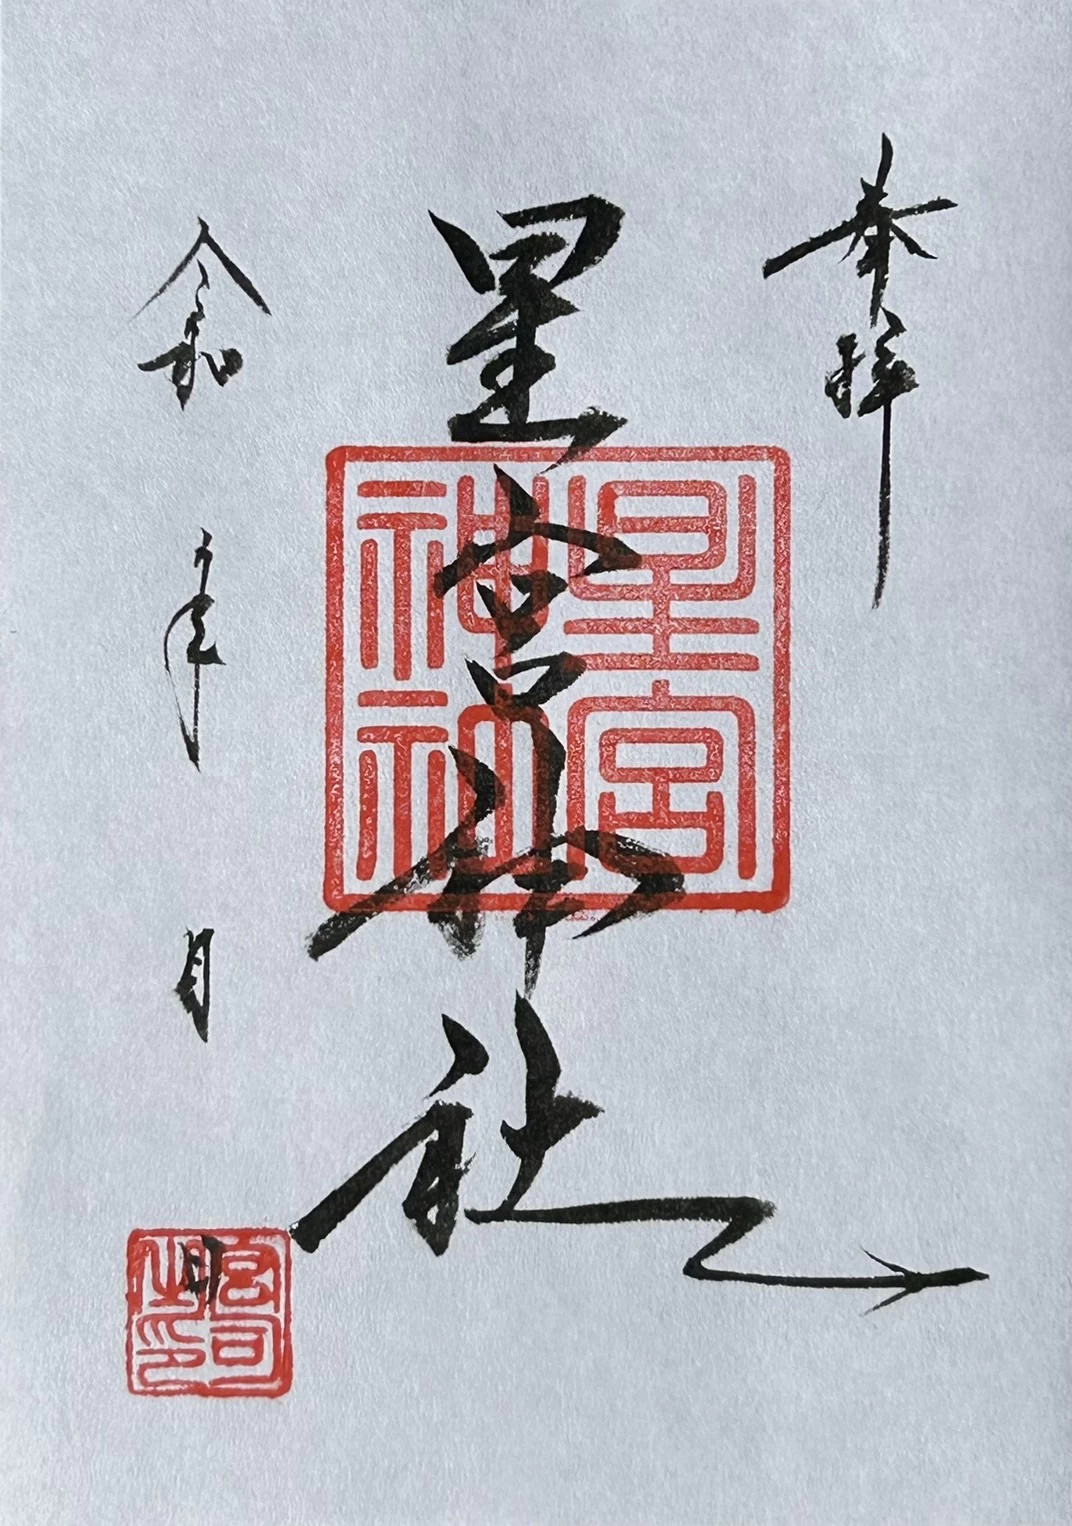 奉拝
星宮神社
令和 年 月 日
星宮
神社
宮司
之印